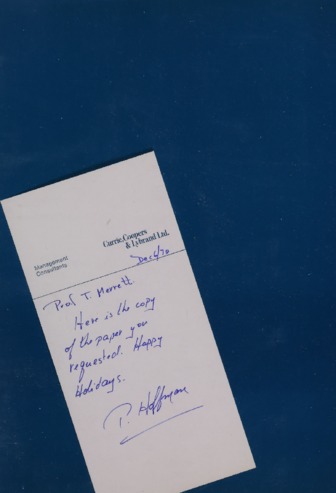 Currie, Coopers
& Lybrand Ltd.
Management
Consultants
Dec 6/70
Prof T. Merrett.
Here is the copy
of the paper you
requested. Happy
Holidays.
P. Hoffman